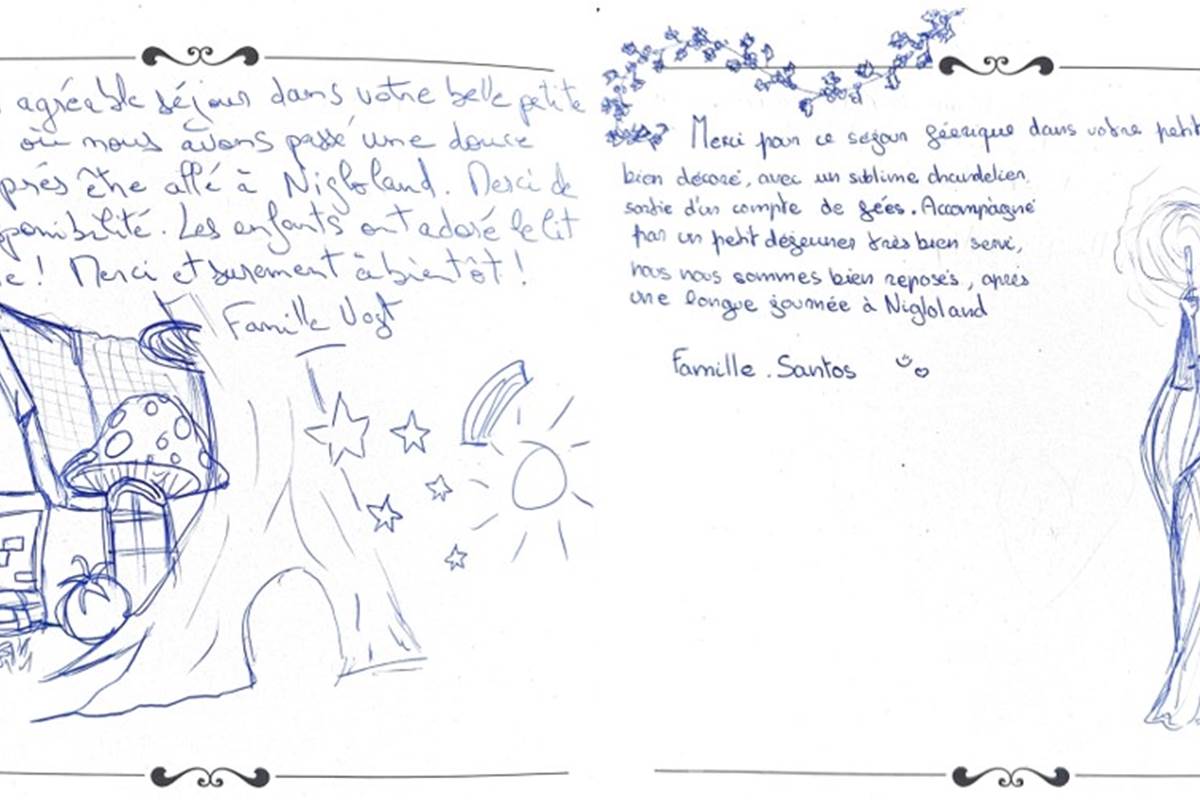 agréable séjour dans votre belle petite
où nous avons passé une douce
près être allé à Nigloland. Merci de
sponibilité. Les enfants ont adoré le lit
e ! Merci et surement à bientôt !
Famille Vogt
Merci pour ce séjour féérique dans votre petit
bien décoré, avec un sublime chandelier,
sortie d'un compte de fées. Accompagné
par un petit déjeuner très bien servi,
nous nous sommes bien reposés, après
une longue journée à Nigloland
Famille . Santos